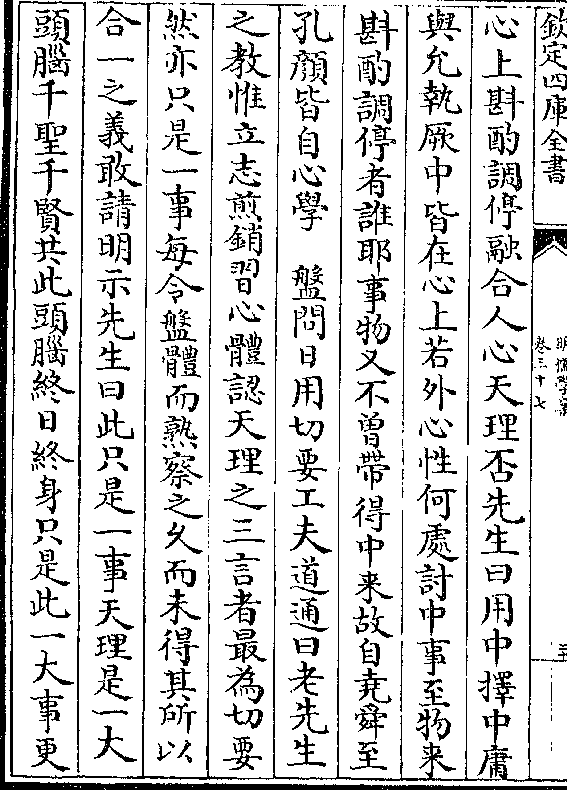 欽定四庫全書
明儒學案
卷三十七
心上斟酌調停融合人心天理否先生曰用中擇中庸
與允執厥中皆在心上若外心性何處討中事至物来
斟酌調停者誰耶事物又不曾帶得中来故自堯舜至
孔顏皆自心學　盤問日用切要工夫道通曰老先生
之教惟立志煎銷習心體認天理之三言者最為切要
然亦只是一事每令盤體而熟察之久而未得其所以
合一之義敢請明示先生曰此只是一事天理是一大
頭腦千聖千賢共此頭腦終日終身只是此一大事更